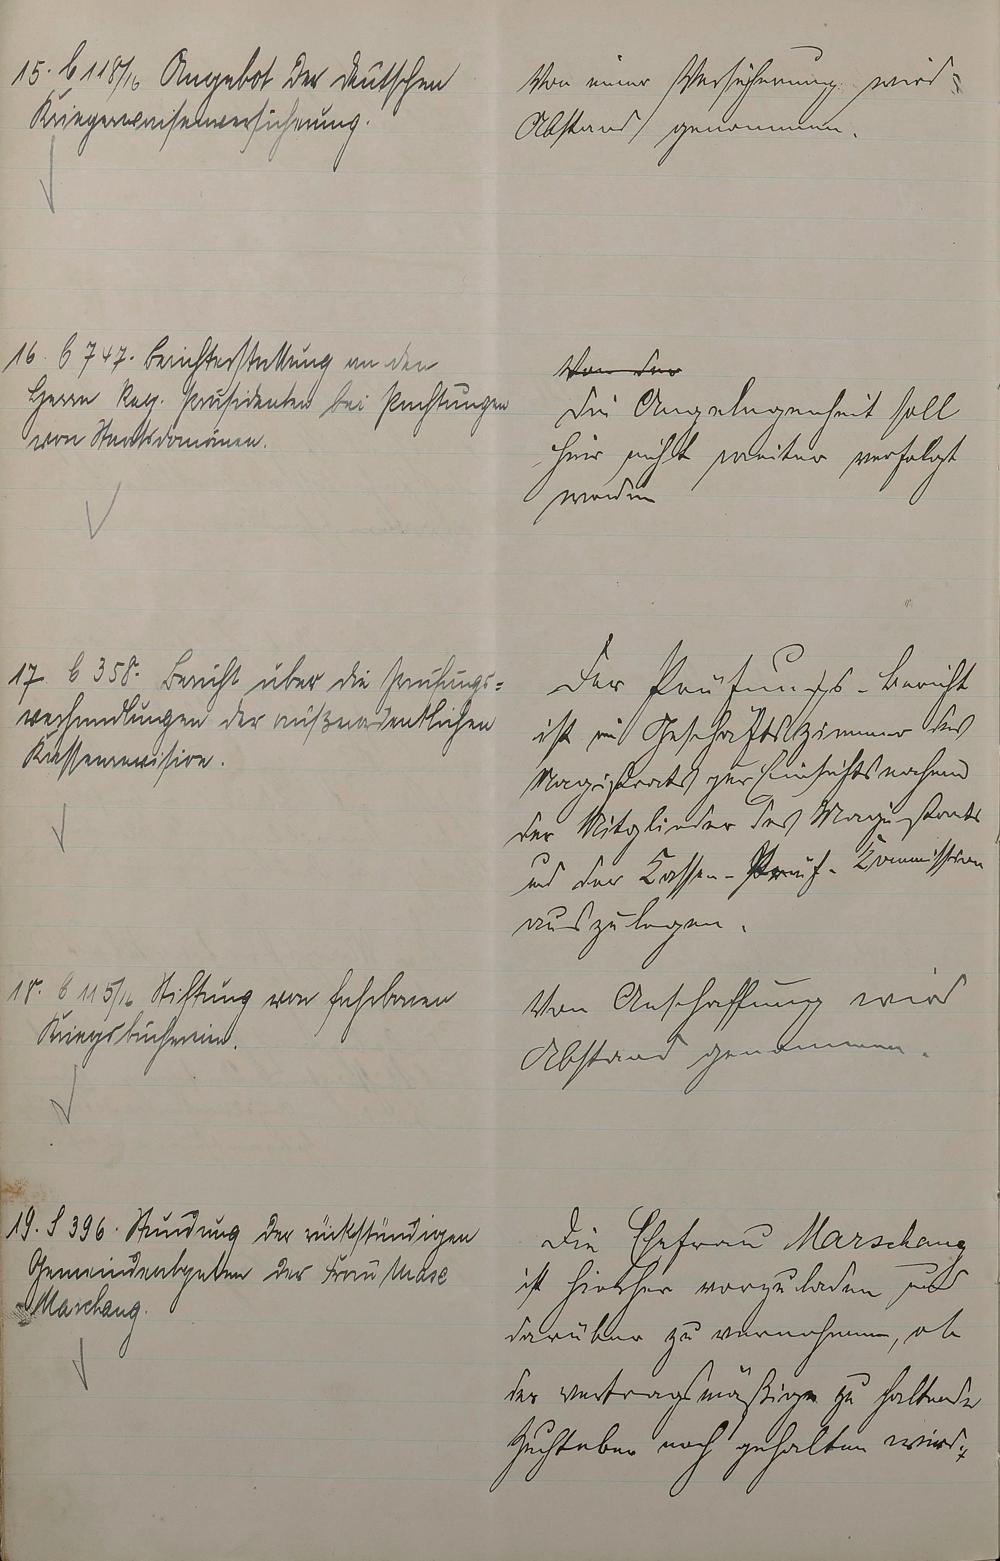 15. b 118/16 Angebot der deutschen
Kriegerwaisenversicherung.
Von einer Versicherung wird
Abstand genommen.
16. b 747. Berichterstattung an den
Herrn Reg. Präsidenten bei Pachtungen
von Staatsdomänen.
Von der
Die Angelegenheit soll
hier nicht weiter verfolgt
werden
17. b 358. Bericht über die Prüfungs=
verhandlungen der außerordentlichen
Kassenrevision.
Der Prüfungs-Bericht
ist im Geschäftszimmer des
Magistrats zur Einsichtsnahme
der Mitglieder des Magistrats
und der Kassen-Prüf-Kommission
auszulegen.
18. b 115/16 Stiftung von fahrbaren
Kriegsbüchereien.
Von Anschaffung wird
Abstand genommen.
19. S 396. Stundung der rückständigen
Gemeindeabgaben der Frau
Marschang.
Die Ehefrau Marschang
ist hierher vorzuladen und
darüber zu vernehmen, ob
der vertragsmäßige zu haltende
Zuchteber noch gehalten wird.